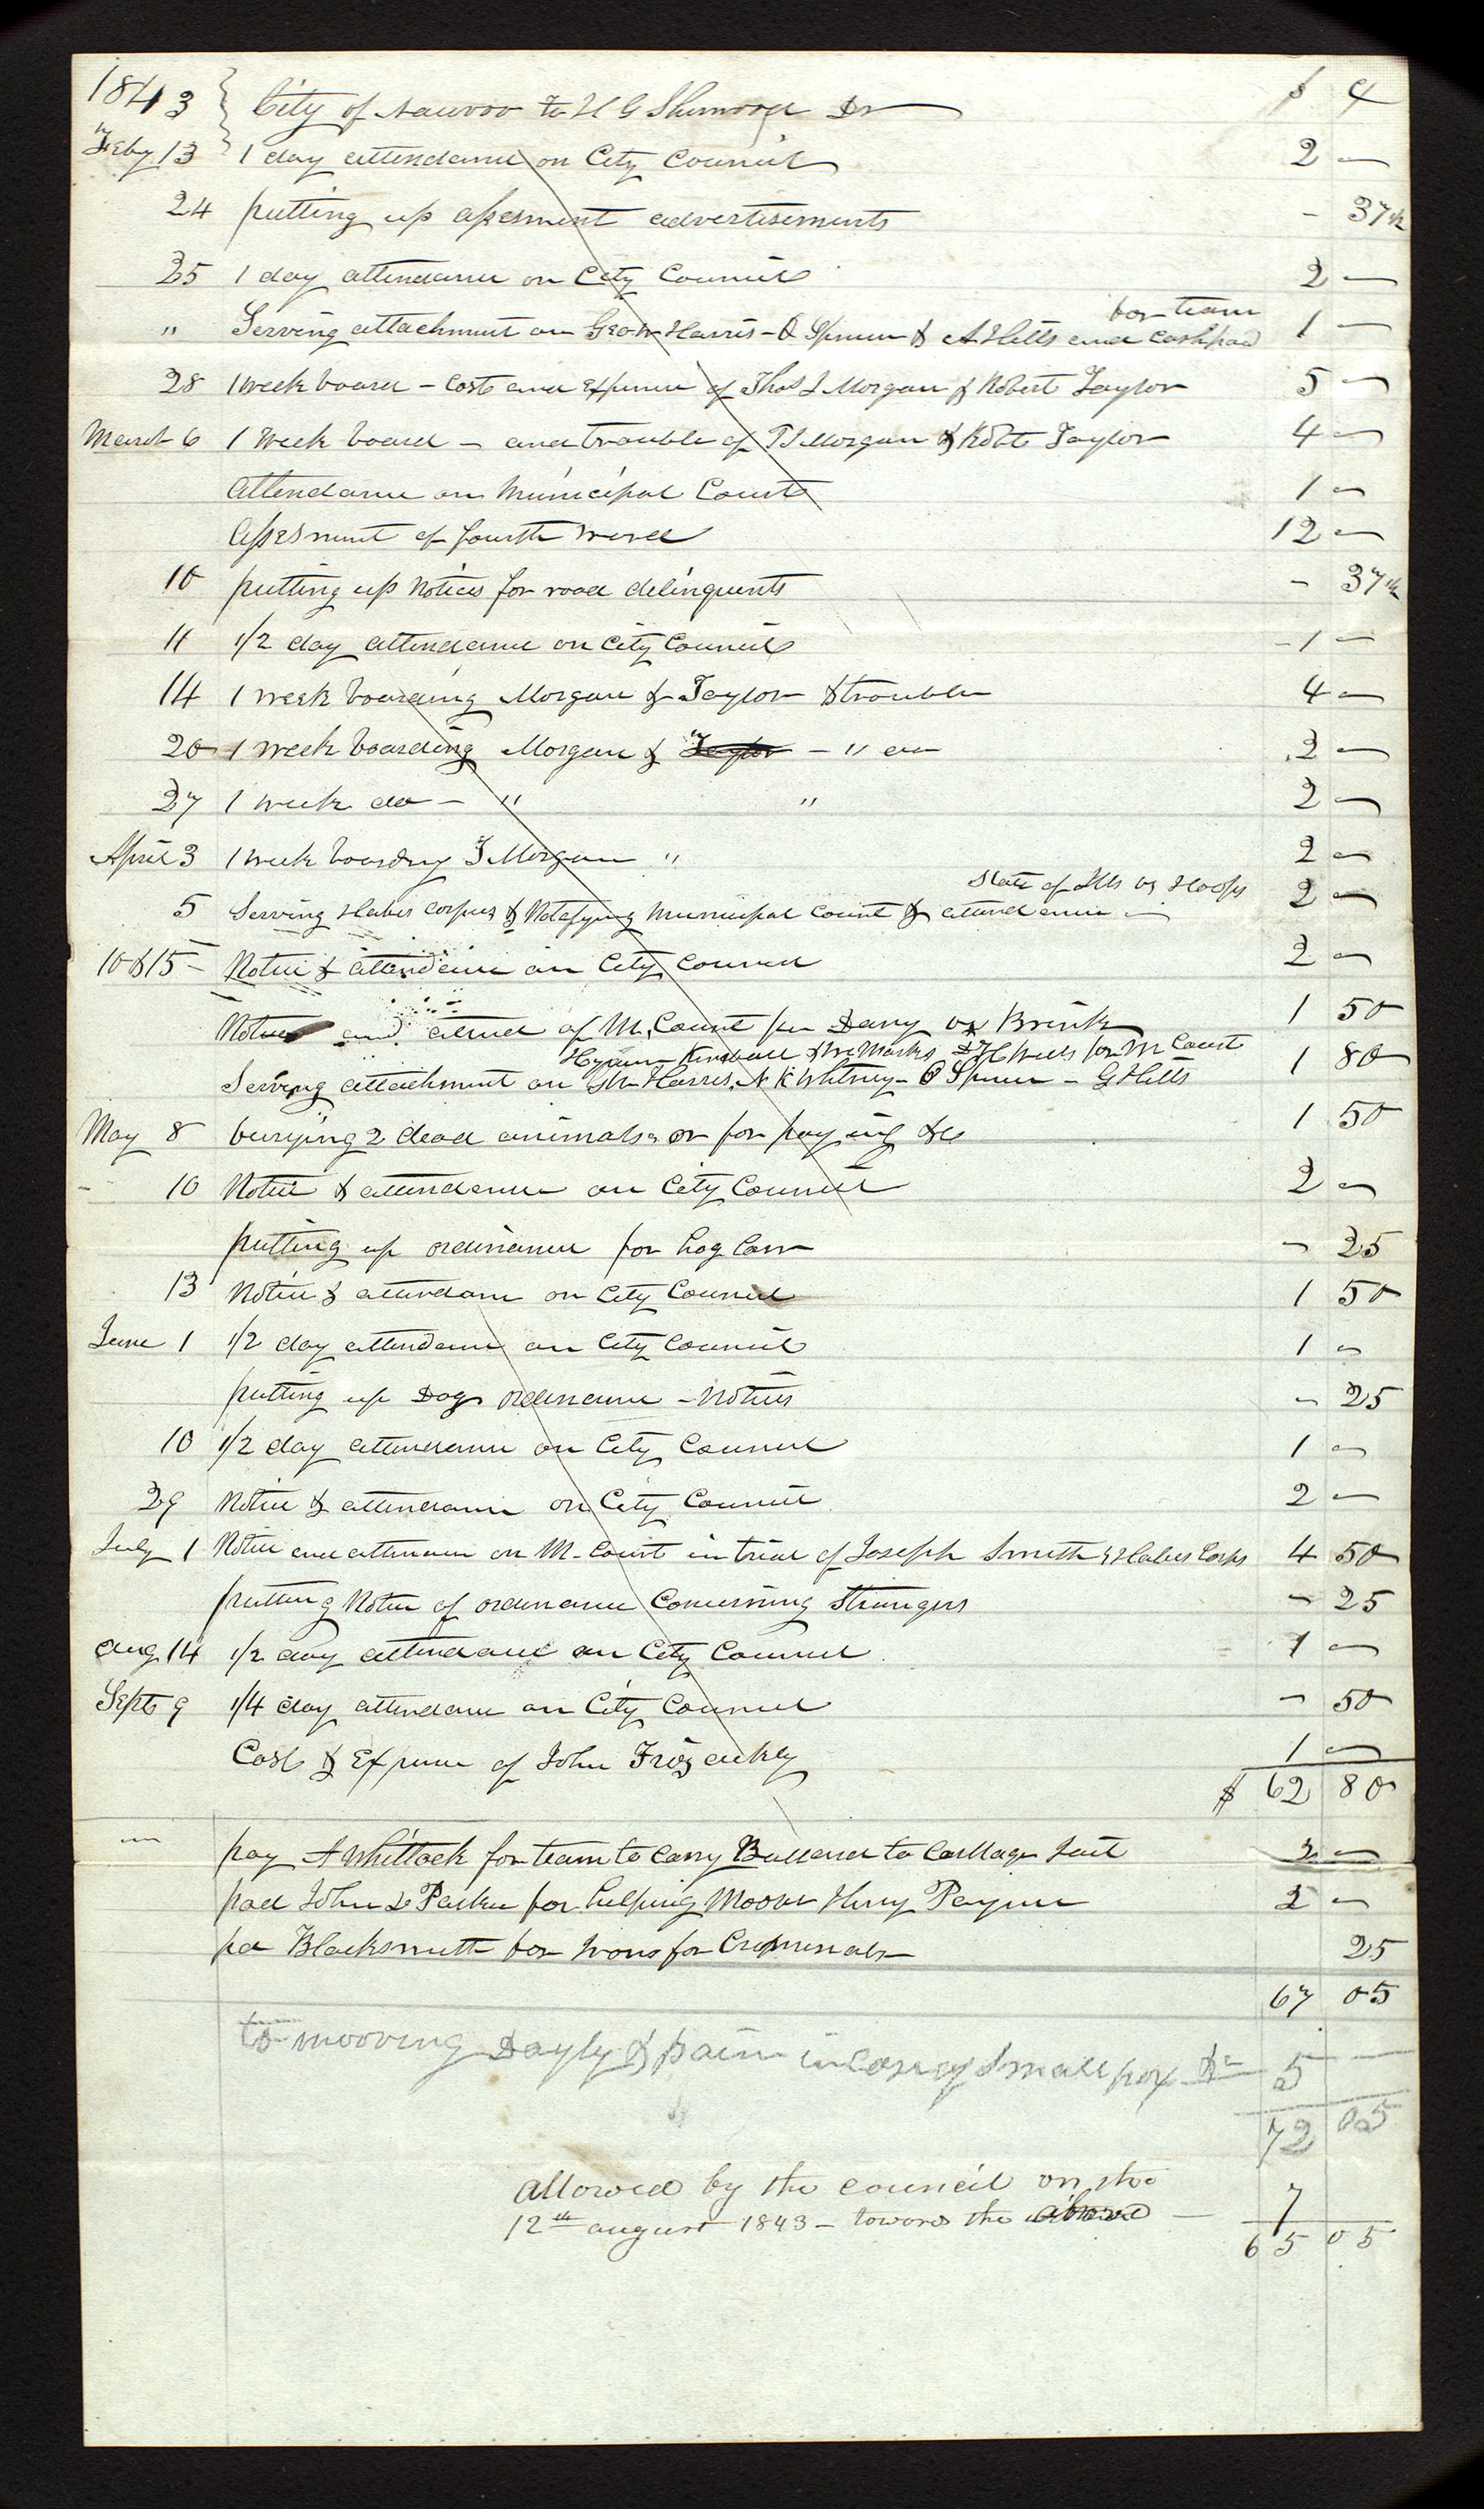 1843 } City of Nauvoo to H G Sherwood Dr $ ¢
Feby 13 1 day attendance on City Council 2 —
24 putting up assesment advertisements - 37½
25 1 day attendance on City Council 2 —
for team
" Serving attachment on Geo W Harris - O Spencer & A Hills and Cash paid 1 —
28 1 week board - Cost and Expence of Thos J Morgan & Robert Taylor 5 —
March 6 1 Week board - and trouble of T J Morgan & Robt Taylor 4 —
Attendance on Municipal Court 1 —
Assesment of fourth ward 12 —
10 putting up Notices for road delinquents - 37½
11 1/2 day attendance on City Council - 1 —
14 1 week boarding Morgan & Taylor & trouble 4 —
20 1 week boarding Morgan & Taylor - " 2 —
27 1 week do - " " 2 —
April 3 1 week boarding T Morgan " 2 —
State of Ills vs Hoops
5 Serving Habes Corpus & Notafying Municipal Court & attendance — 2 —
10 & 15 - Notice & attendance on City Council 2 —
Notice and attend of M. Court per Dany vs Brink 1 50
Hyrum Kimball & Wm Marks D H Wells for M Court
Serving attachment on G W Harris, N K Whitney - O Spencer - G Hills 1 80
May 8 burying 2 dead animals or for paying &c 1 50
- 10 Notice & attendance on City Council 2 —
putting up ordinance for hog Law - 25
13 Notice & attendance on City Council 1 50
June 1 1/2 day attendance on City Council 1 —
putting up Dog ordinance - Notices - 25
10 1/2 day attendance on City Council 1 —
29 Notice & attendance on City Council 2 —
July 1 Notice and attendance on M. Court in trial of Joseph Smith Habes Corps 4 50
putting Notice of ordinance Concerning Strangers - 25
Aug 14 1/2 day attendance on City Council 1 —
Sept 9 1/4 day attendance on City Council - 50
Cost & Expence of John 1 —
$ 62 80
— pay A Whitlock for team to Carry to Carthage Jail 2 —
paid John D Parker for helping Moove Henry Payne 2 —
pd Blacksmith for Irons for Criminals 25
67 05
to mooving Dayly & pain in Case of Small pox &c 5 —
72 05
allowed by the council on the
12th august 1843 - towards the above — 7
65 05